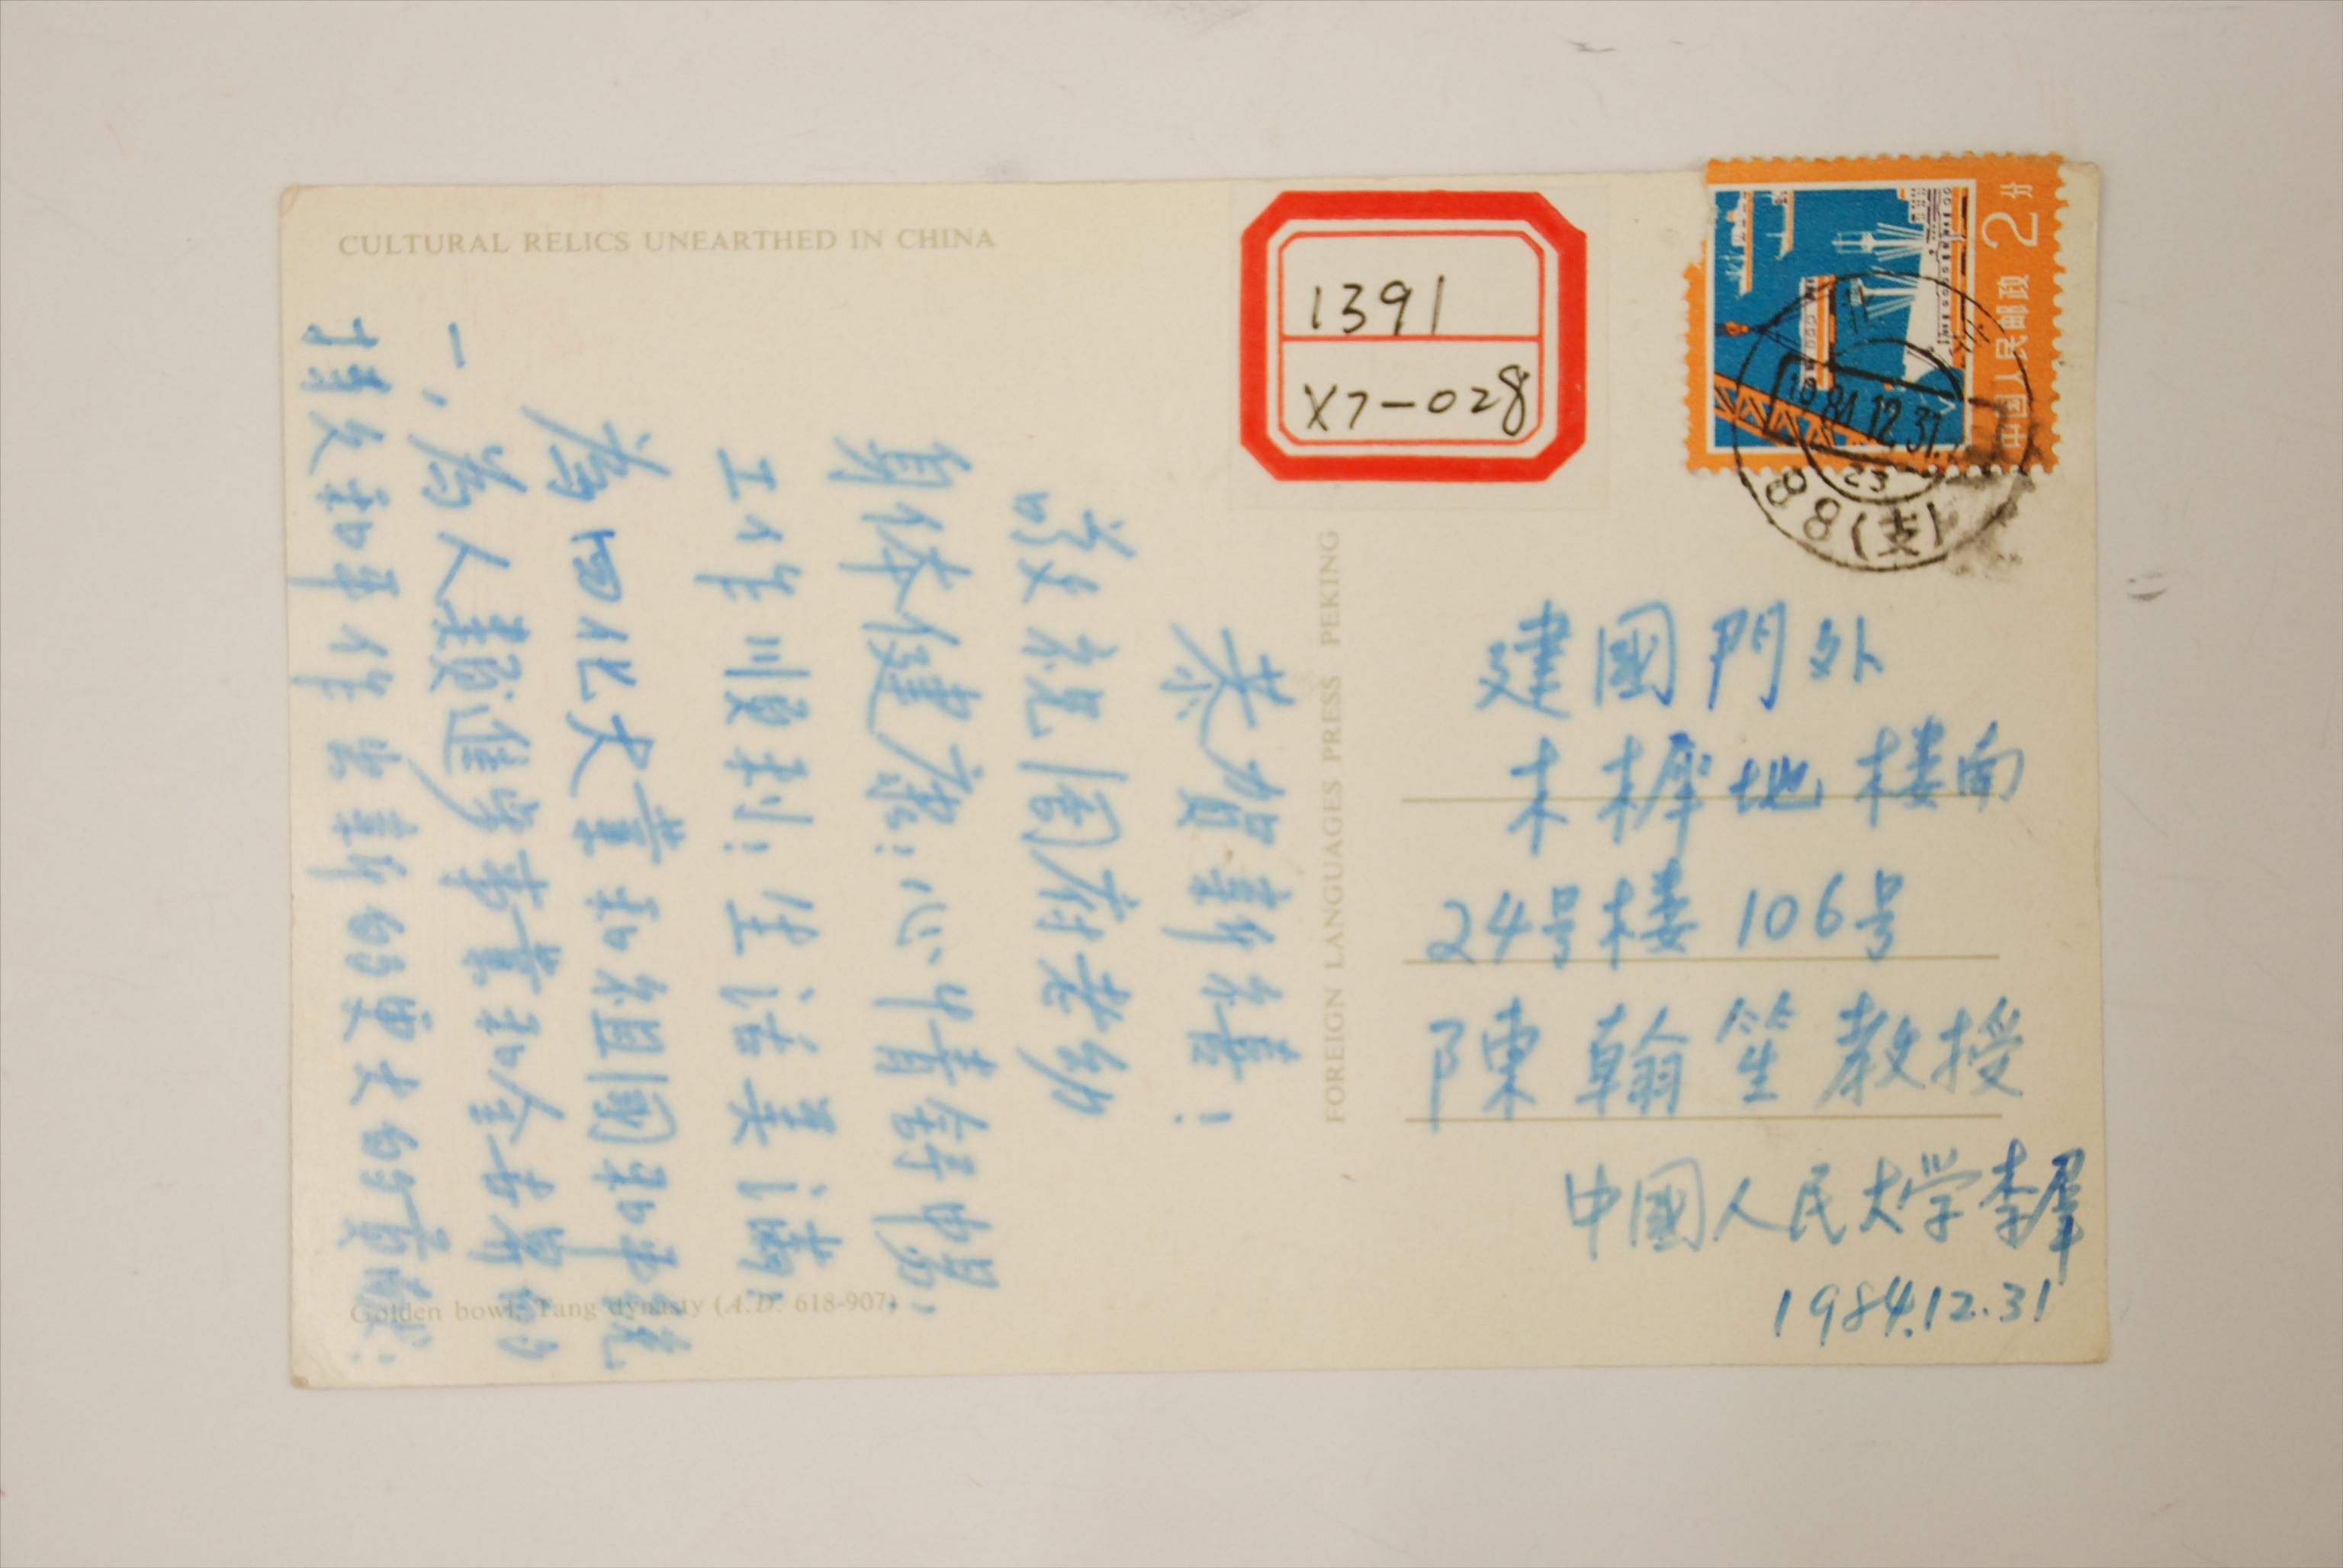 CULTURAL RELICS UNEARTHED IN CHINA
恭賀新禧!
敬祝阖府老幼
身体健康;心情舒暢;
工作順利;生活美满;
為四化大業和祖國和平統
一,為人類進步事業和全世界的
持久和平作出新的更大的貢献!
Golden bowl, Tang dynasty (A.D. 618-907)
FOREIGN LANGUAGES PRESS PEKING
1391
X7-028
中国人民邮政 2分
北京
1984.12.31.
23
(支)88
建國門外
木樨地楼南
24号楼106号
陳翰笙教授
中國人民大学李羣
1984.12.31